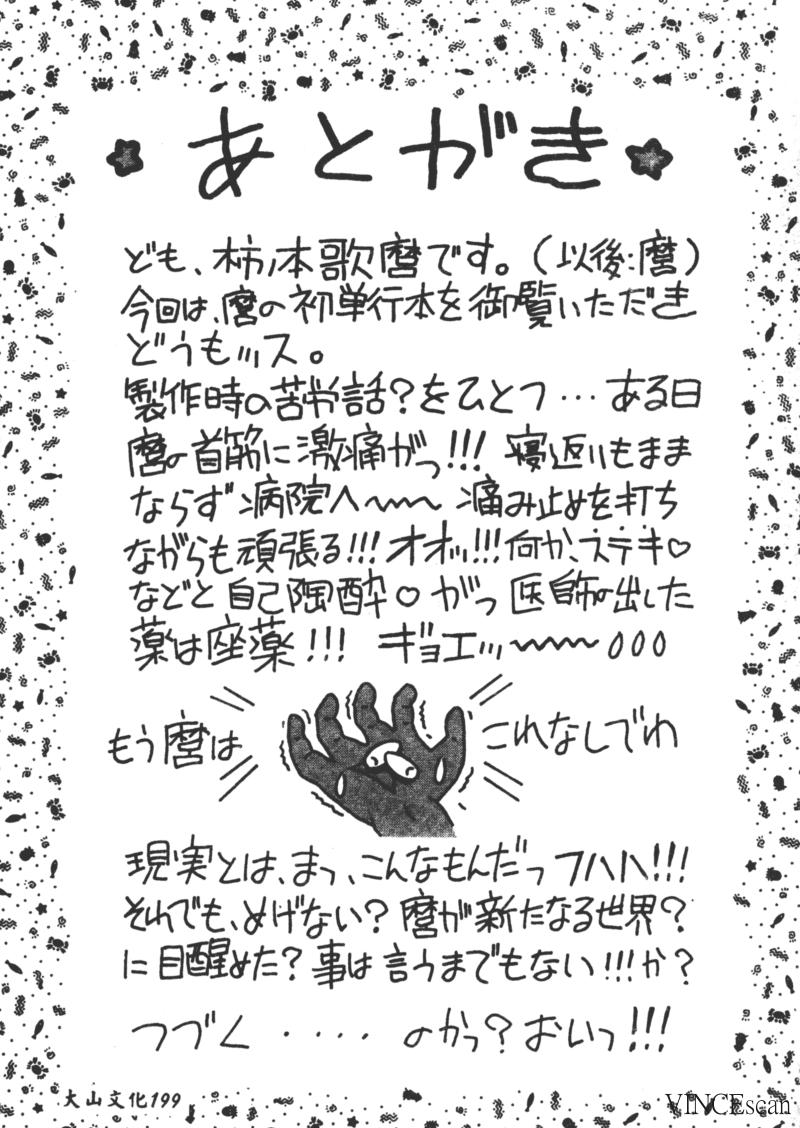 あとがき
ども、柿ノ本歌麿です。(以後:麿)
今回は、麿の初単行本を御覧いただき
どうもッス。
製作時の苦労話?をひとつ…ある日
麿の首筋に激痛がっ!!! 寝返りもまま
ならず病院へ〜〜 痛み止めを打ち
ながらも頑張る!!!オオッ!!!何か、ステキ♡
などと自己陶酔♡がっ医師の出した
薬は座薬!!! ギョエッ〜〜〜
もう麿は
これなしでわ
現実とは、まっ、こんなもんだっフハハ!!!
それでも、めげない?麿が新たなる世界?
に目醒めた?事は言うまでもない!!!か?
つづく・・・・のかっ?おいっ!!!
大山文化199
VINCEscan